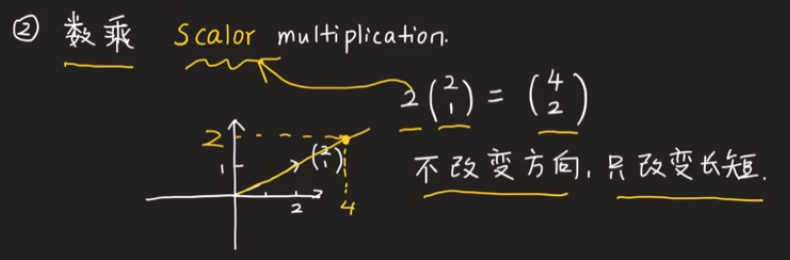 ② 数乘 Scalor multiplication.
2(2 1) = (4 2)
2
1 (2 1)
2 4
不改变方向，只改变长短.